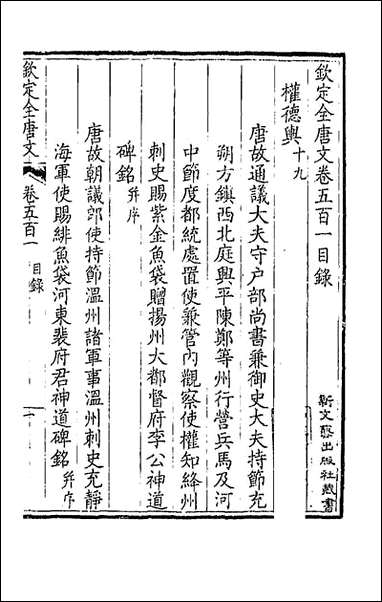 欽定全唐文卷五百一目錄
權德輿十九
唐故通議大夫守戶部尚書兼御史大夫持節充
朔方鎮西北庭興平陳鄭等州行營兵馬及河
中節度都統處置使兼管內觀察使權知絳州
刺史賜紫金魚袋贈揚州大都督府李公神道
碑銘并序
唐故朝議郎使持節溫州諸軍事溫州刺史充靜
海軍使賜緋魚袋河東裴府君神道碑銘并序
欽定全唐文
卷五百一
目錄
一
新文藝出版社藏書